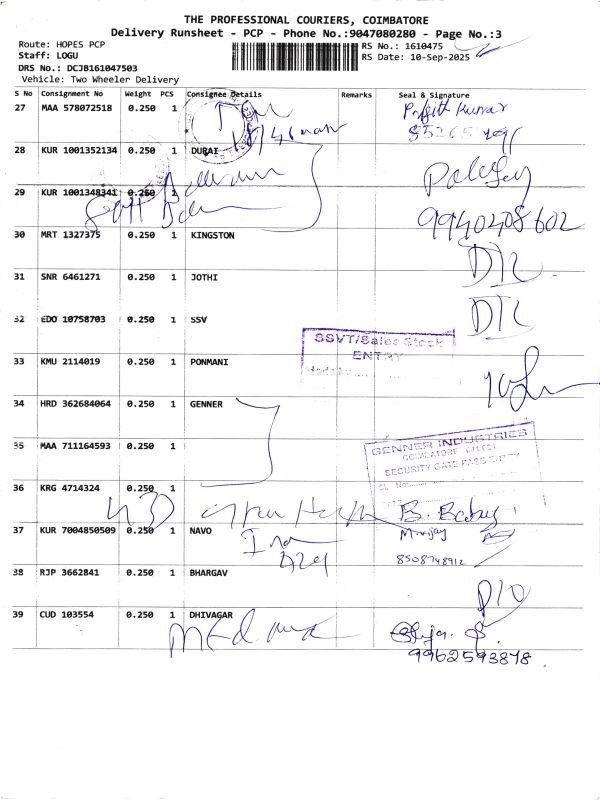 THE PROFESSIONAL COURIERS, COIMBATORE
Delivery Runsheet - PCP - Phone No.:9047080280 - Page No.:3
Route: HOPES PCP
Staff: LOGU
DRS No.: DCJB161047503
Vehicle: Two Wheeler Delivery
RS No.: 1610475
RS Date: 10-Sep-2025
S No Consignment No Weight PCS Consignee Details Remarks Seal & Signature
27 MAA 578072518 0.250 1
28 KUR 1001352134 0.250 1 DURAI
29 KUR 1001348341 0.250 1
9940408602
30 MRT 1327375 0.250 1 KINGSTON
31 SNR 6461271 0.250 1 JOTHI
32 EDO 10758703 0.250 1 SSV
SSVT/Sales Stock
ENTRY
33 KMU 2114019 0.250 1 PONMANI
34 HRD 362684064 0.250 1 GENNER
GENNER INDUSTRIES
SECURITY GATE PASS ENTRY
35 MAA 711164593 0.250 1
36 KRG 4714324 0.250 1
37 KUR 7004850509 0.250 1 NAVO
8508748912
38 RJP 3662841 0.250 1 BHARGAV
39 CUD 103554 0.250 1 DHIVAGAR
9962593878